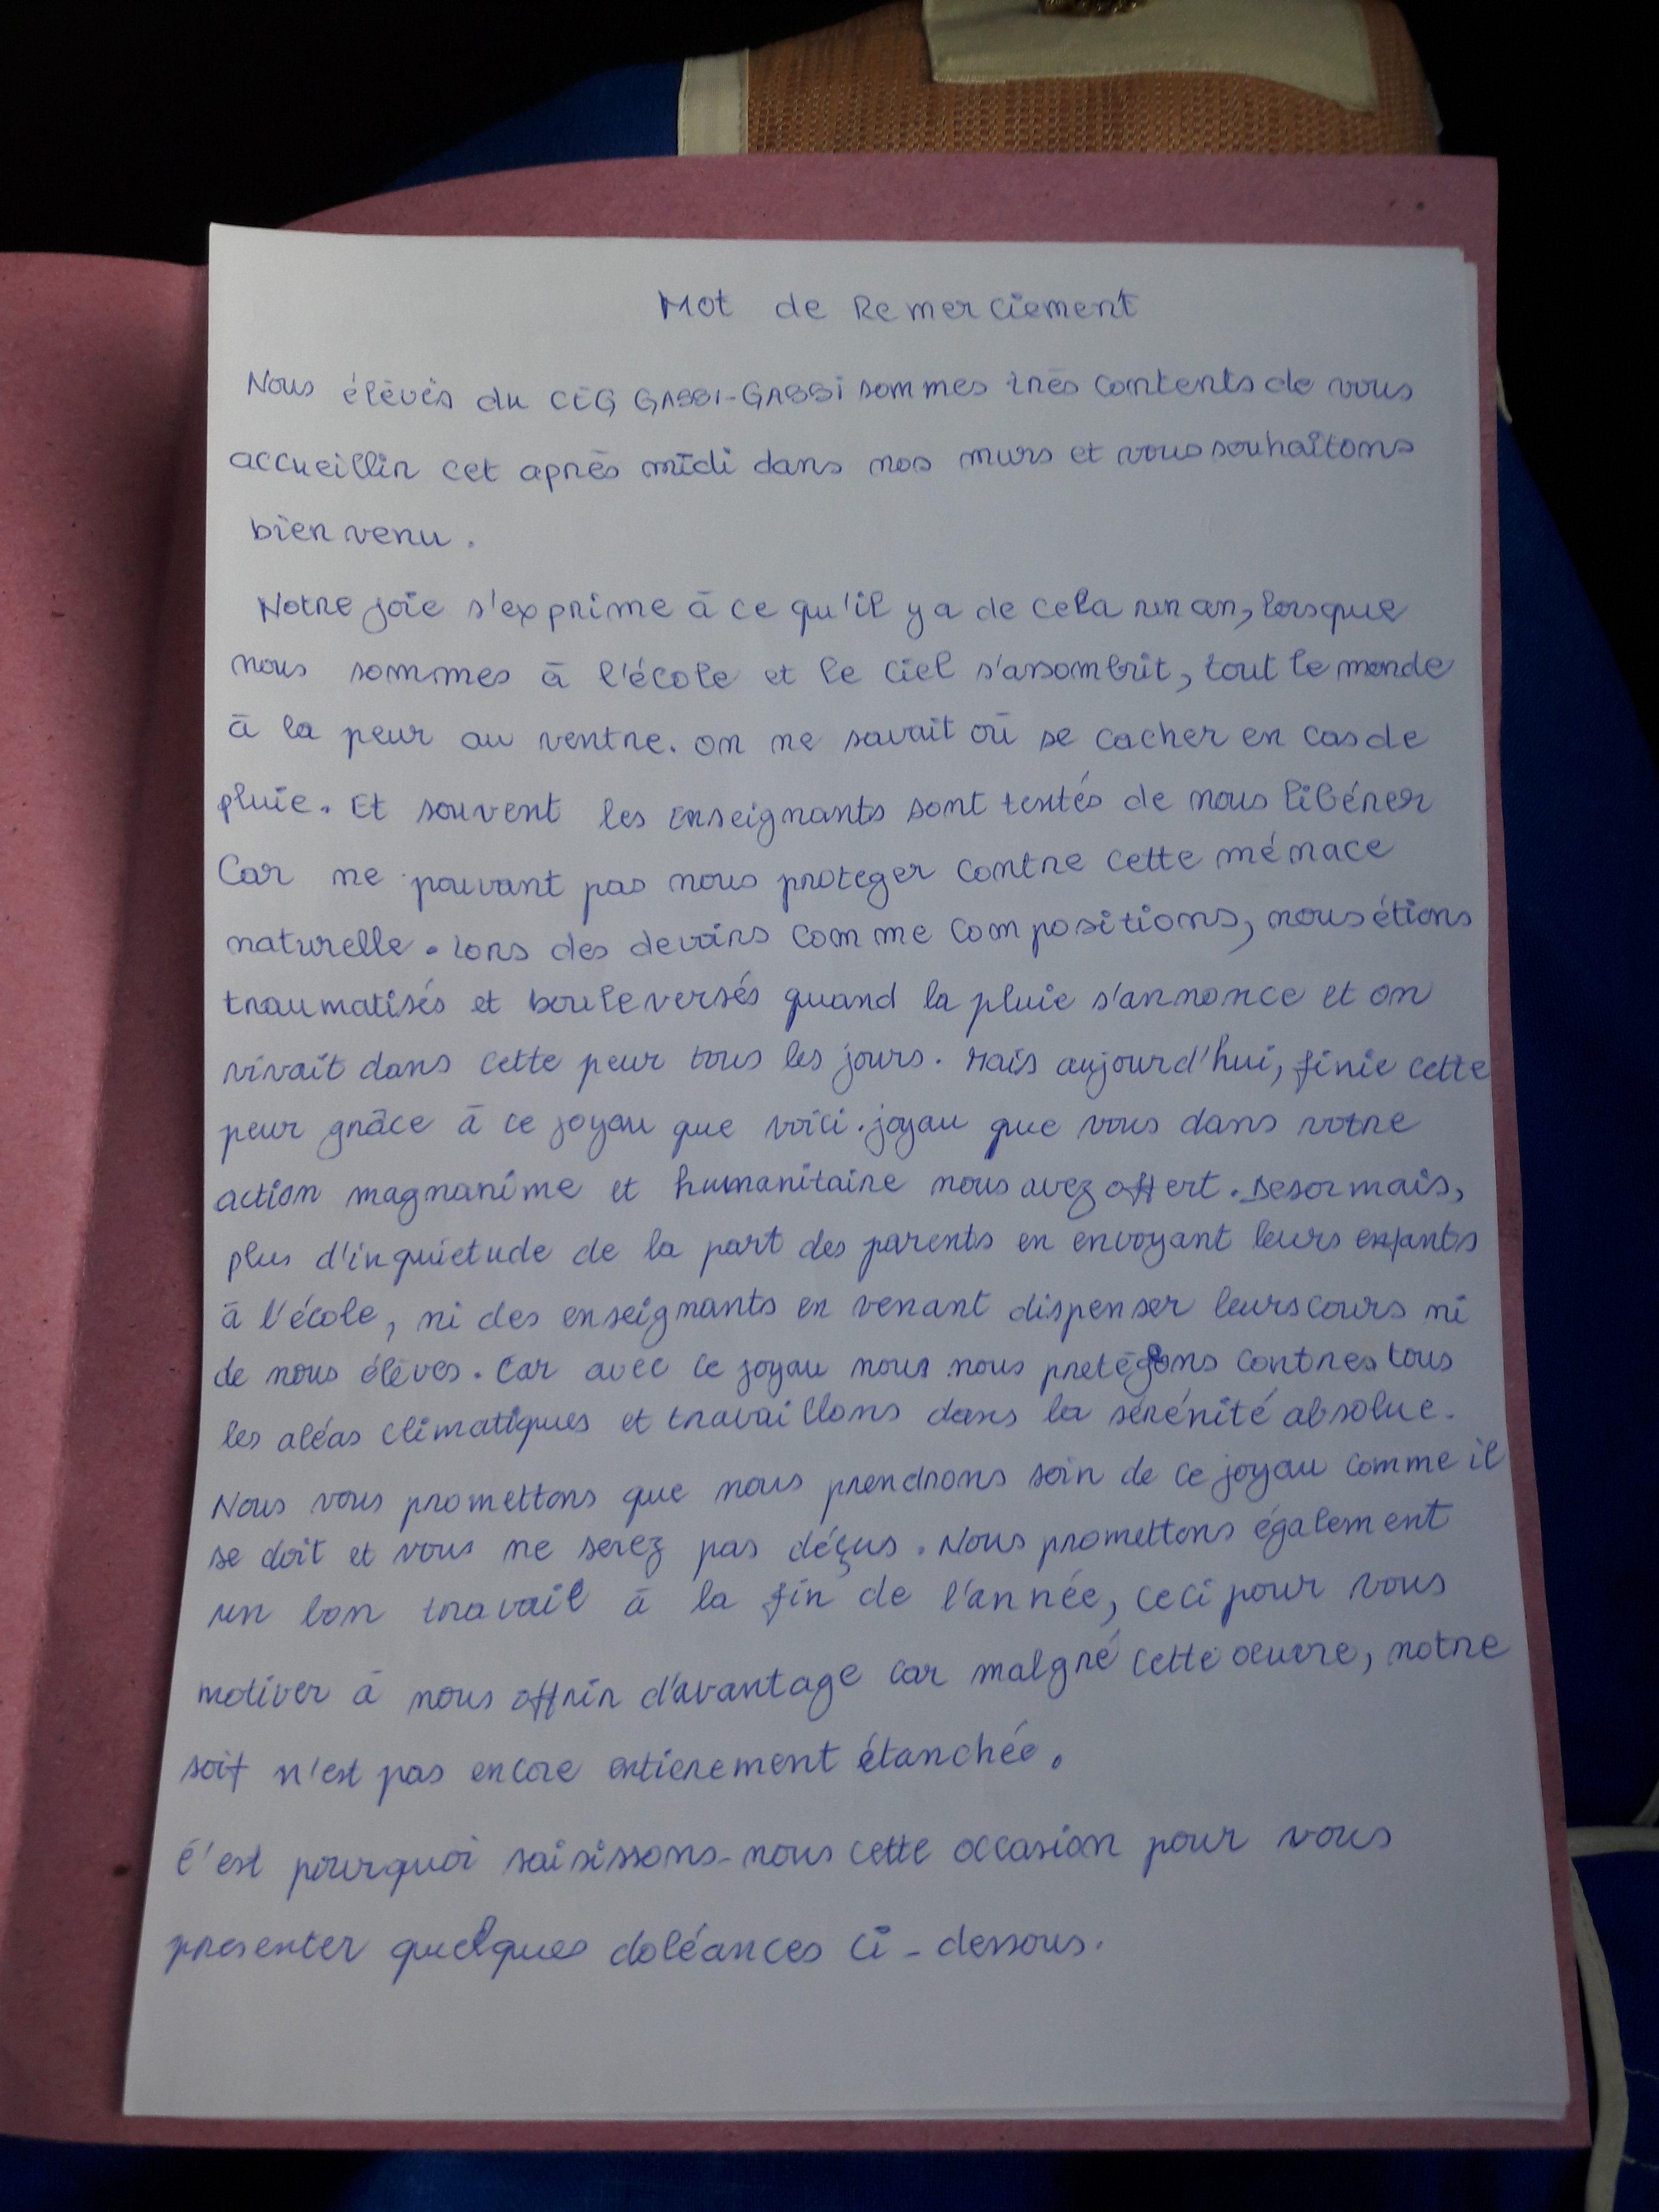 Mot de Remerciement
Nous élèvès du CEG GASSI-GASSI sommes très contents de vous
accueillir cet après midi dans nos murs et vous souhaitons
bien venu.
Notre joie s'exprime à ce qu'il y a de cela un an, lorsque
nous sommes à l'école et le ciel s'assombrit, tout le monde
à la peur au ventre. on ne savait où se cacher en cas de
pluie. Et souvent les enseignants sont tentés de nous libérer
Car ne pouvant pas nous proteger contre cette ménace
naturelle. Lors des devoirs comme compositions, nous étions
traumatisés et bouleversés quand la pluie s'annonce et on
vivait dans cette peur tous les jours. Mais aujourd'hui, finie cette
peur grâce à ce joyau que voici. joyau que vous dans votre
action magnanime et humanitaire nous avez offert. Desormais,
plus d'inquietude de la part des parents en envoyant leurs enfants
à l'école, ni des enseignants en venant dispenser leurs cours ni
de nous élèves. Car avec ce joyau nous nous protégeons contres tous
les aléas climatiques et travaillons dans la sérénité absolue.
Nous vous promettons que nous prendrons soin de ce joyau comme il
se doit et vous ne serez pas déçus. Nous promettons également
un bon travail à la fin de l'année, ceci pour vous
motiver à nous offrir d'avantage car malgré cette oeuvre, notre
soif n'est pas encore entierement étanchée.
C'est pourquoi saisissons-nous cette occasion pour vous
presenter quelques doléances ci-dessous.